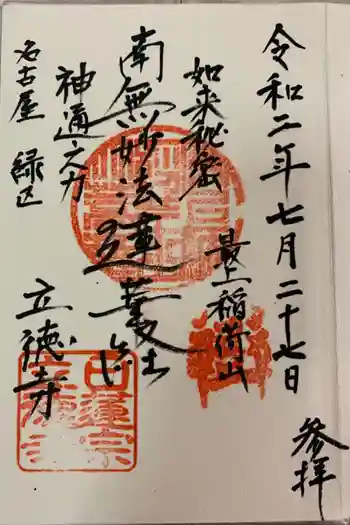 令和二年七月二十七日
参拝
如来秘密
最上稲荷山
南無妙法蓮華経
神通之力
名古屋 緑区
立徳寺